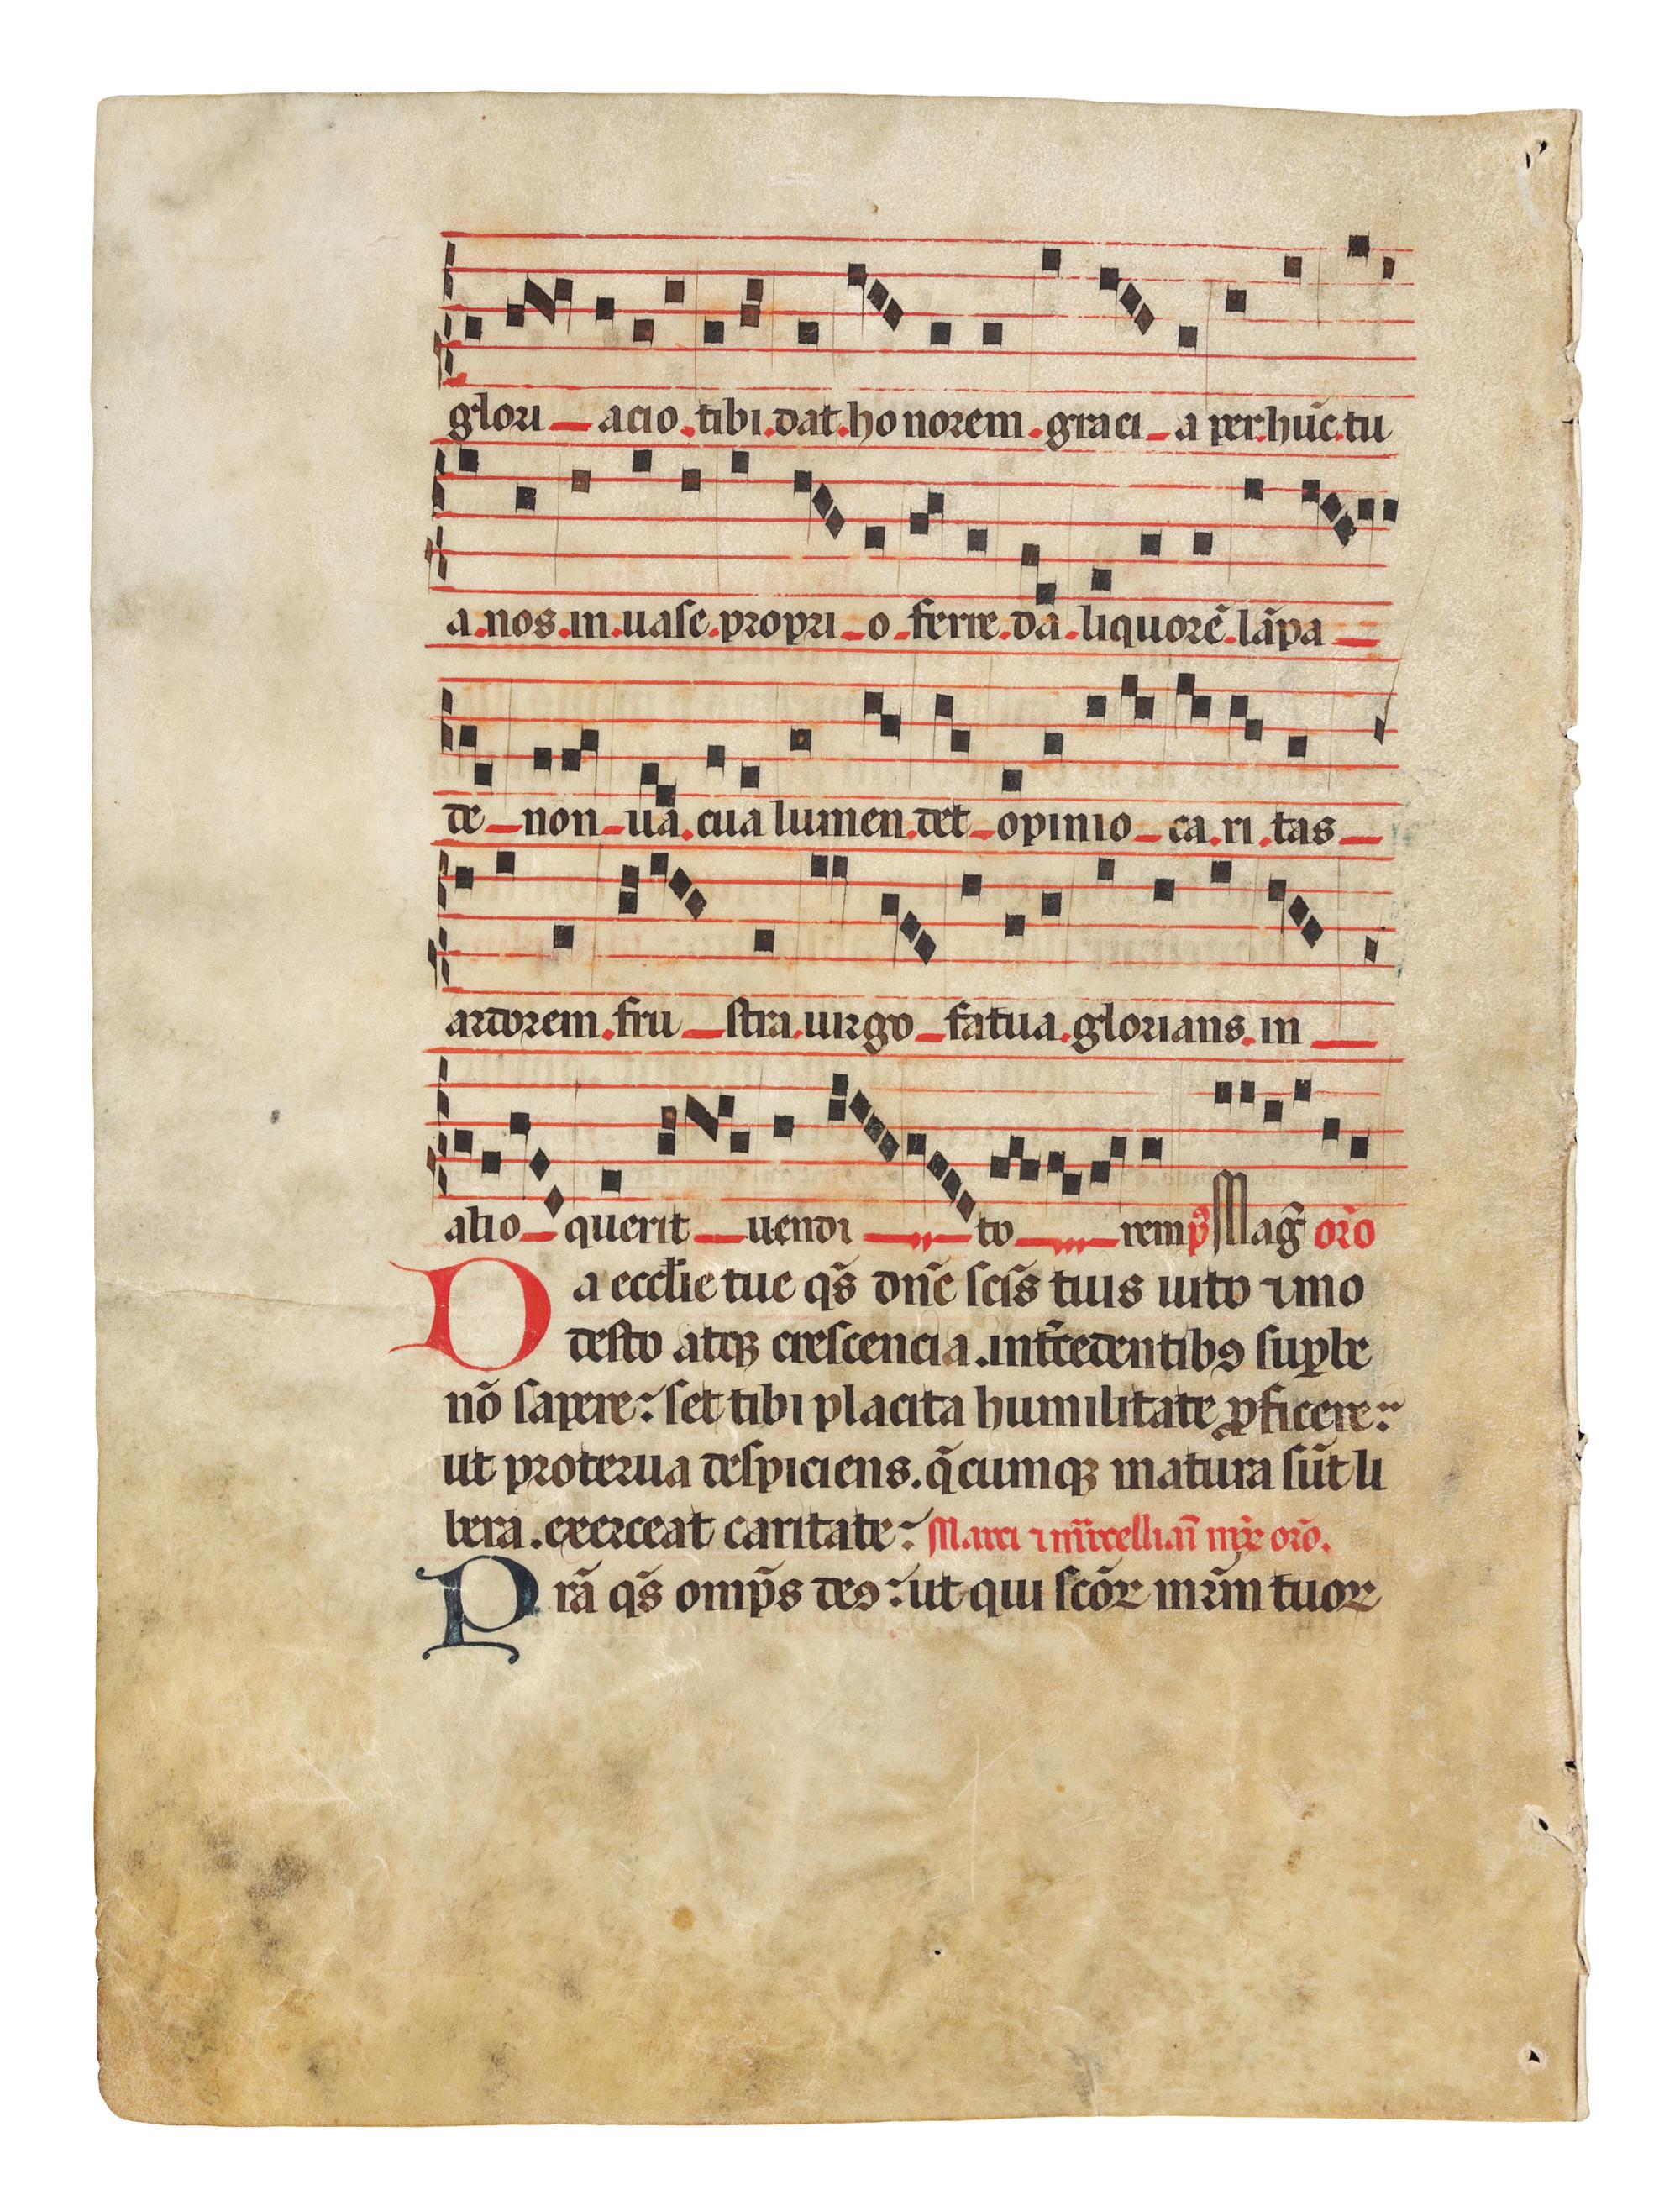 glori acio tibi dat honorem graci a per hūc tu
a nos in uase propri o ferre da liquorē lāpa
de non ua cua lumen det opinio ca ri tas
ardorem fru stra uirgo fatua glorians in
alio querit uendi to rem p̄ Mag̅ or̅o
Da eccl̅ie tue qs̄ dn̄e sc̄is tuis uito ⁊ mo
desto atqꝫ crescencia. int̄cedentibꝯ suꝑbe
nō sapere: set tibi placita humilitate ꝓficere:
ut proterua despiciens. q̄cumqꝫ matura sūt li
bera. exerceat caritate: Marci ⁊ m̄rcelliani mr̄ꝝ or̅o.
Prā qs̄ omp̄s deꝯ: ut qui sc̄oꝝ mr̄m tuoꝝ